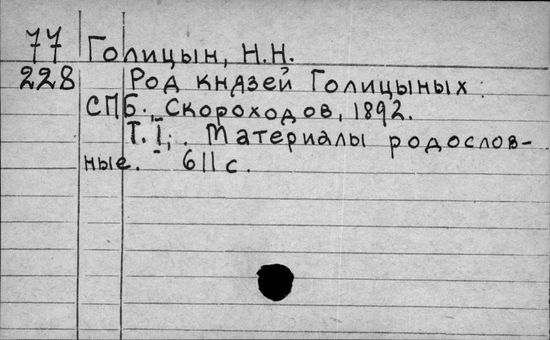 77 Голицын, Н.Н.
228 Род князей Голицыных.
СПБ., Скороходов, 1892.
Т. I,. Материалы родослов-
ные. 611 с.